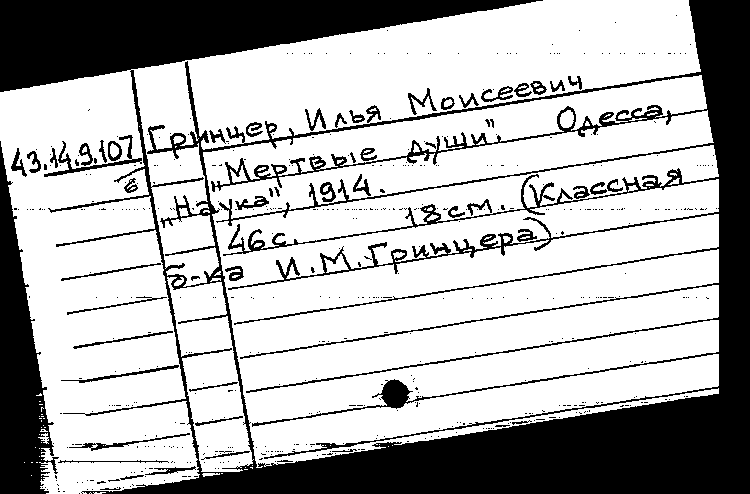 43.14.9.107 Гринцер, Илья Моисеевич
"Мертвые души". Одесса,
„Наука", 1914.
46 с. 18 см. (Классная
б-ка И.М.Гринцера).